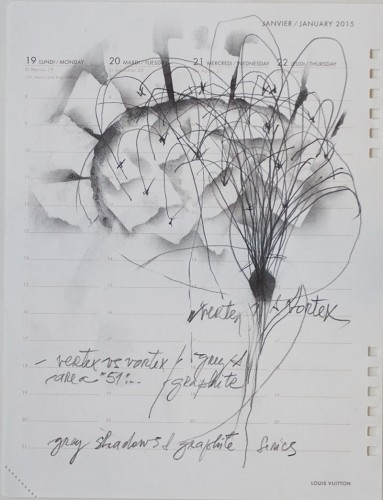 JANVIER / JANUARY 2015
19 LUNDI / MONDAY 20 MARDI / TUESDAY 21 MERCREDI / WEDNESDAY 22 JEUDI / THURSDAY
vertex vortex
- vertex vs vortex / grey &
area "51"... graphite
grey shadows & graphite Series
LOUIS VUITTON